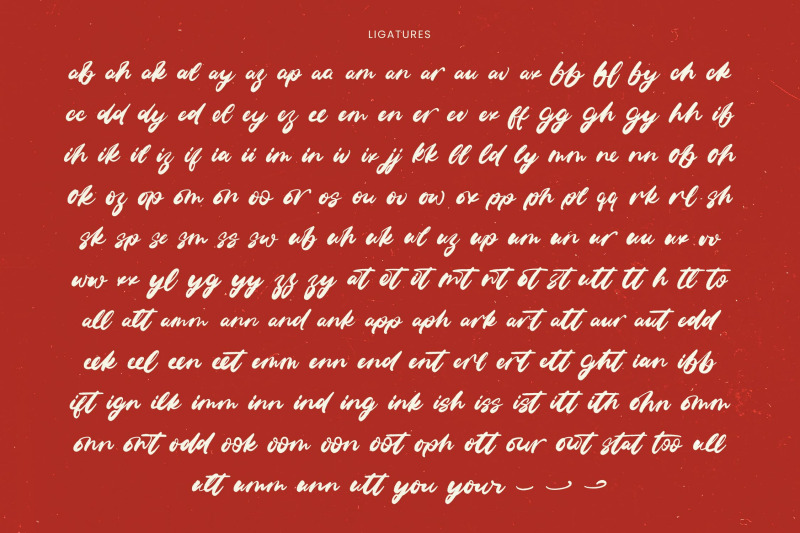 LIGATURES
ab ah ak al ay az ap aa am an ar au av ax bb bl by ch ck
cc dd dy ed el ey ez ee em en er ev ex ff gg gh gy hh ib
ih ik il iz if ia ii im in iv ix jj kk ll ld ly mm ne nn ob oh
ok oz op om on oo or os ou ov ow ox pp ph pl qq rk rl sh
sk sp se sm ss sw ub uh uk ul uz up um un ur uu ux vv
ww xx yl yg yy zz zy at et it mt nt ot st utt tt h tl to
all att amm ann and ank app aph ark art att aur aut edd
eek eel een eet emm enn end ent erl ert ett ght ian ibb
ift ign ilk imm inn ind ing ink ish iss ist itt ith ohn omm
onn ont odd ook oom oon oot oph ott our out stat too ull
ult umm unn utt you your